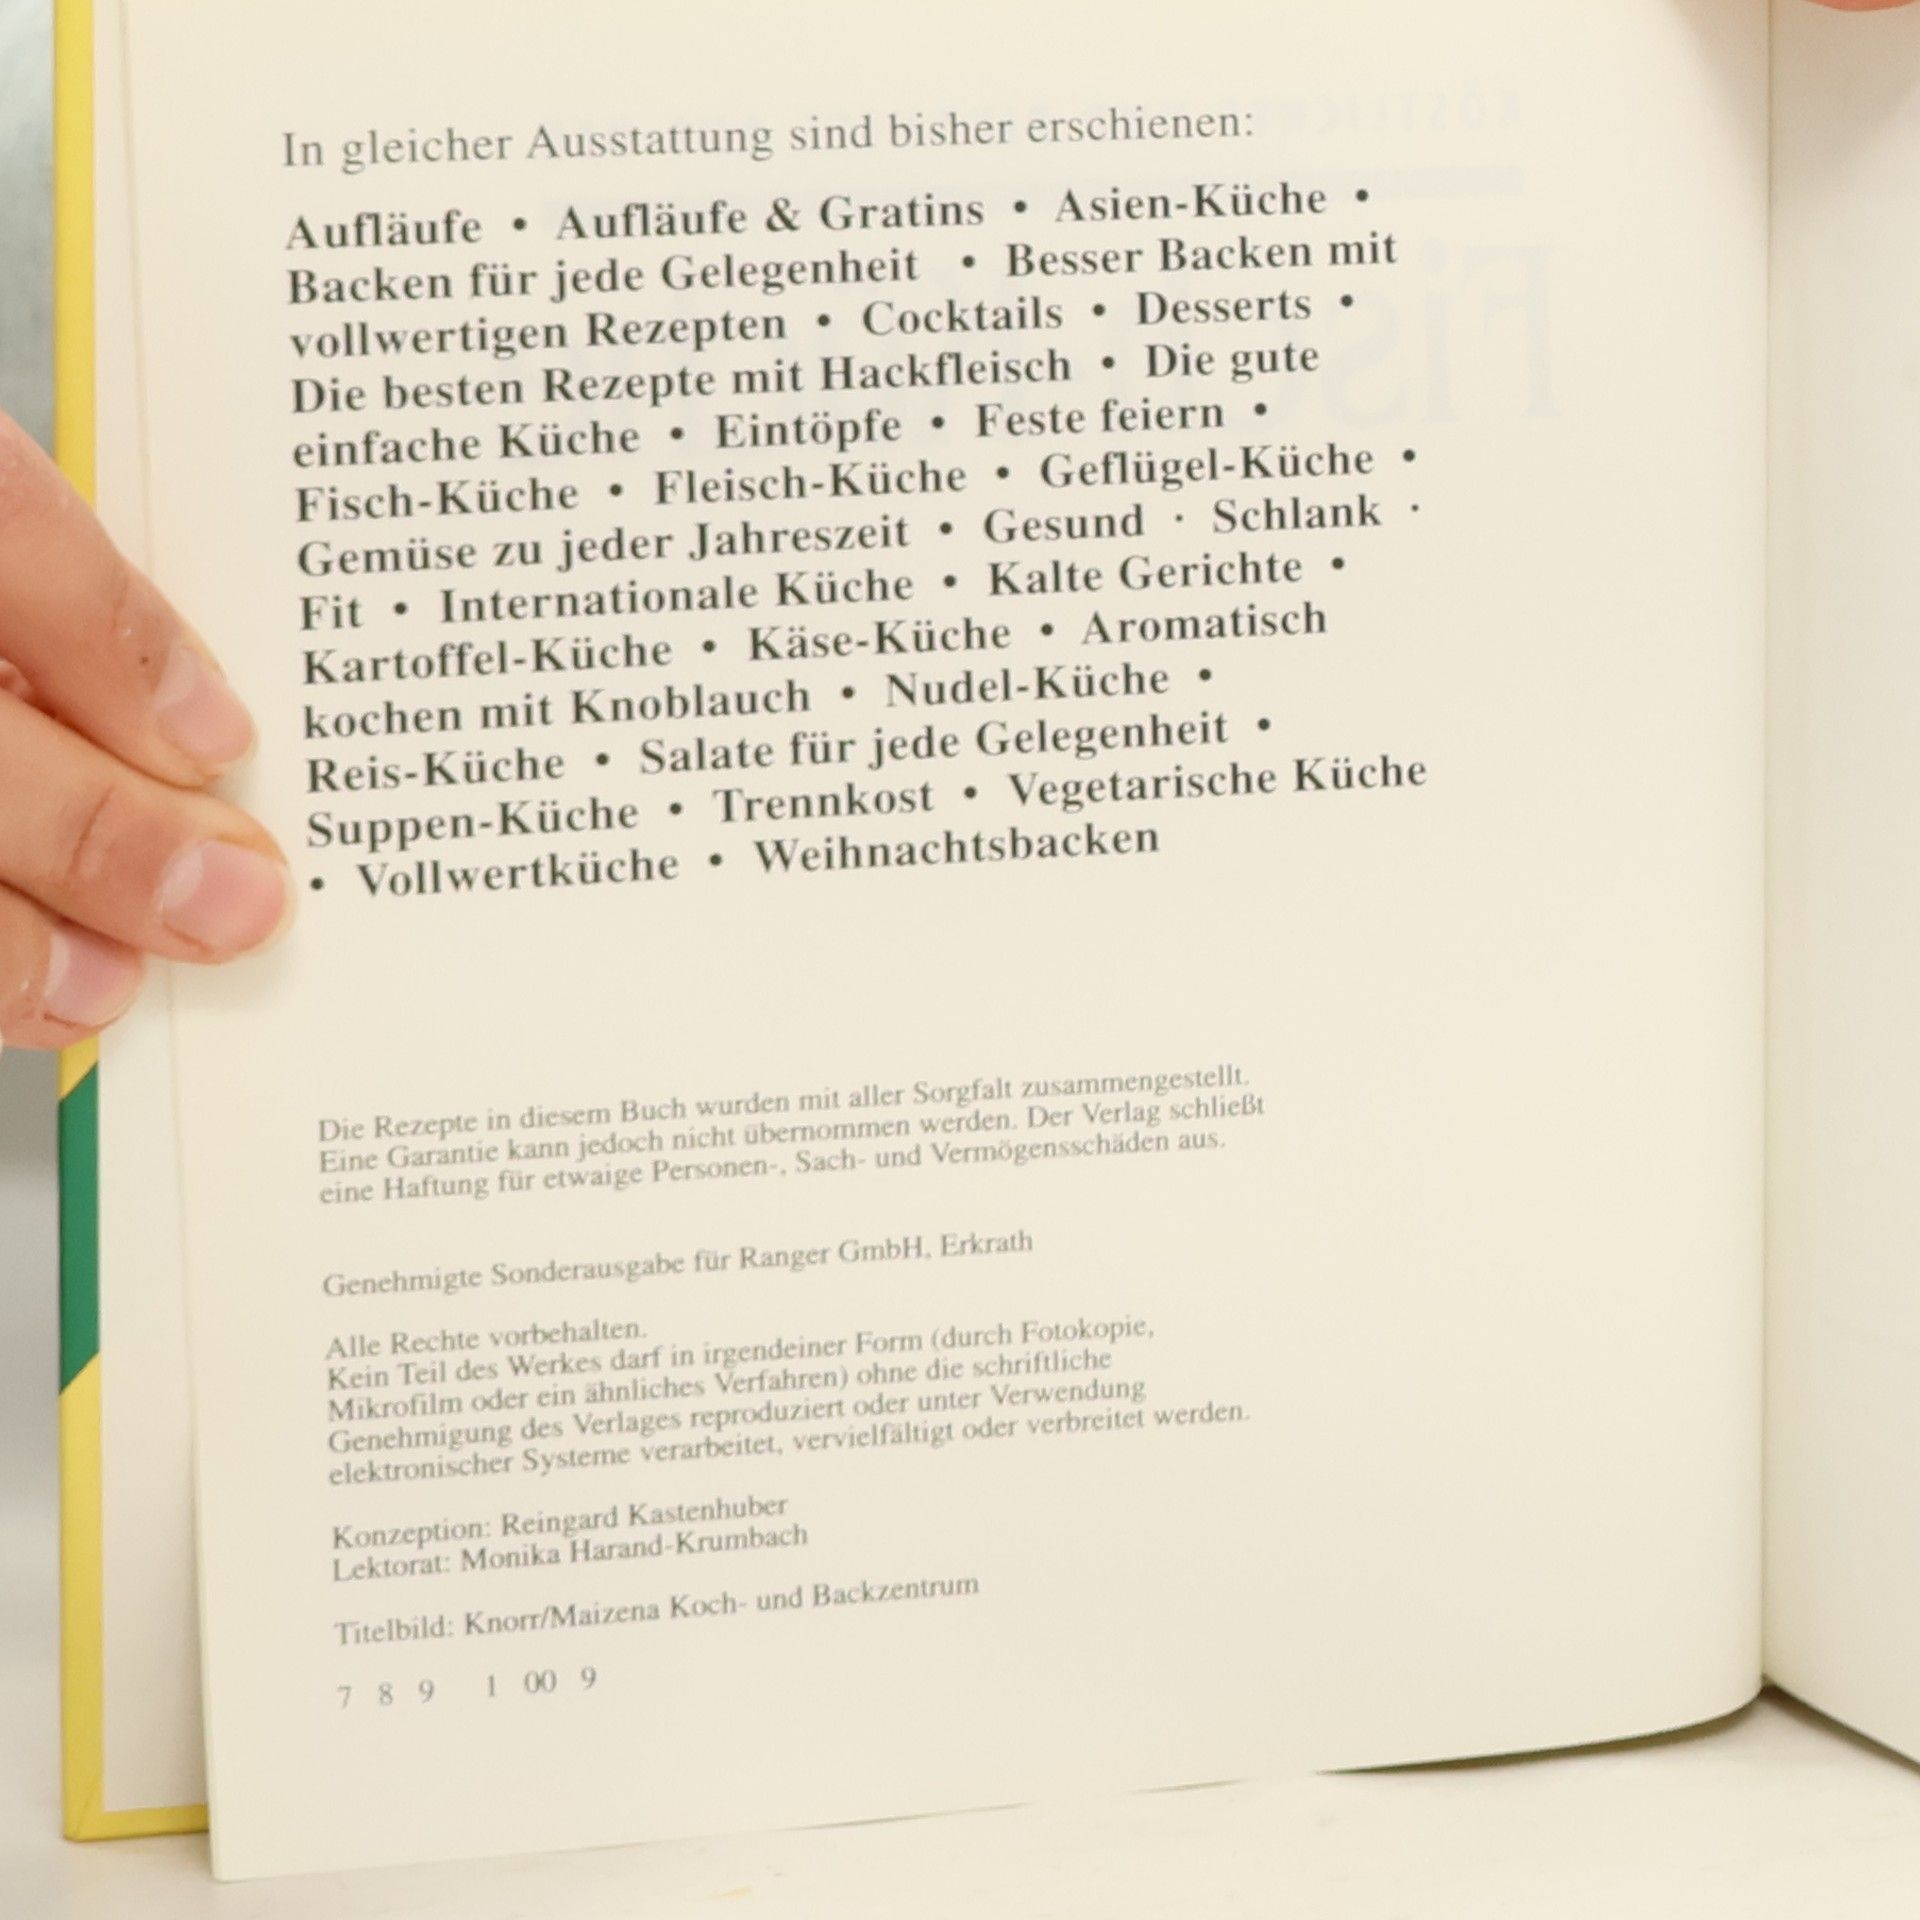 In gleicher Ausstattung sind bisher erschienen:
Aufläufe • Aufläufe & Gratins • Asien-Küche •
Backen für jede Gelegenheit • Besser Backen mit
vollwertigen Rezepten • Cocktails • Desserts •
Die besten Rezepte mit Hackfleisch • Die gute
einfache Küche • Eintöpfe • Feste feiern •
Fisch-Küche • Fleisch-Küche • Geflügel-Küche •
Gemüse zu jeder Jahreszeit • Gesund · Schlank ·
Fit • Internationale Küche • Kalte Gerichte •
Kartoffel-Küche • Käse-Küche • Aromatisch
kochen mit Knoblauch • Nudel-Küche •
Reis-Küche • Salate für jede Gelegenheit •
Suppen-Küche • Trennkost • Vegetarische Küche
• Vollwertküche • Weihnachtsbacken
Die Rezepte in diesem Buch wurden mit aller Sorgfalt zusammengestellt.
Eine Garantie kann jedoch nicht übernommen werden. Der Verlag schließt
eine Haftung für etwaige Personen-, Sach- und Vermögensschäden aus.
Genehmigte Sonderausgabe für Ranger GmbH, Erkrath
Alle Rechte vorbehalten.
Kein Teil des Werkes darf in irgendeiner Form (durch Fotokopie,
Mikrofilm oder ein ähnliches Verfahren) ohne die schriftliche
Genehmigung des Verlages reproduziert oder unter Verwendung
elektronischer Systeme verarbeitet, vervielfältigt oder verbreitet werden.
Konzeption: Reingard Kastenhuber
Lektorat: Monika Harand-Krumbach
Titelbild: Knorr/Maizena Koch- und Backzentrum
7 8 9 1 00 9